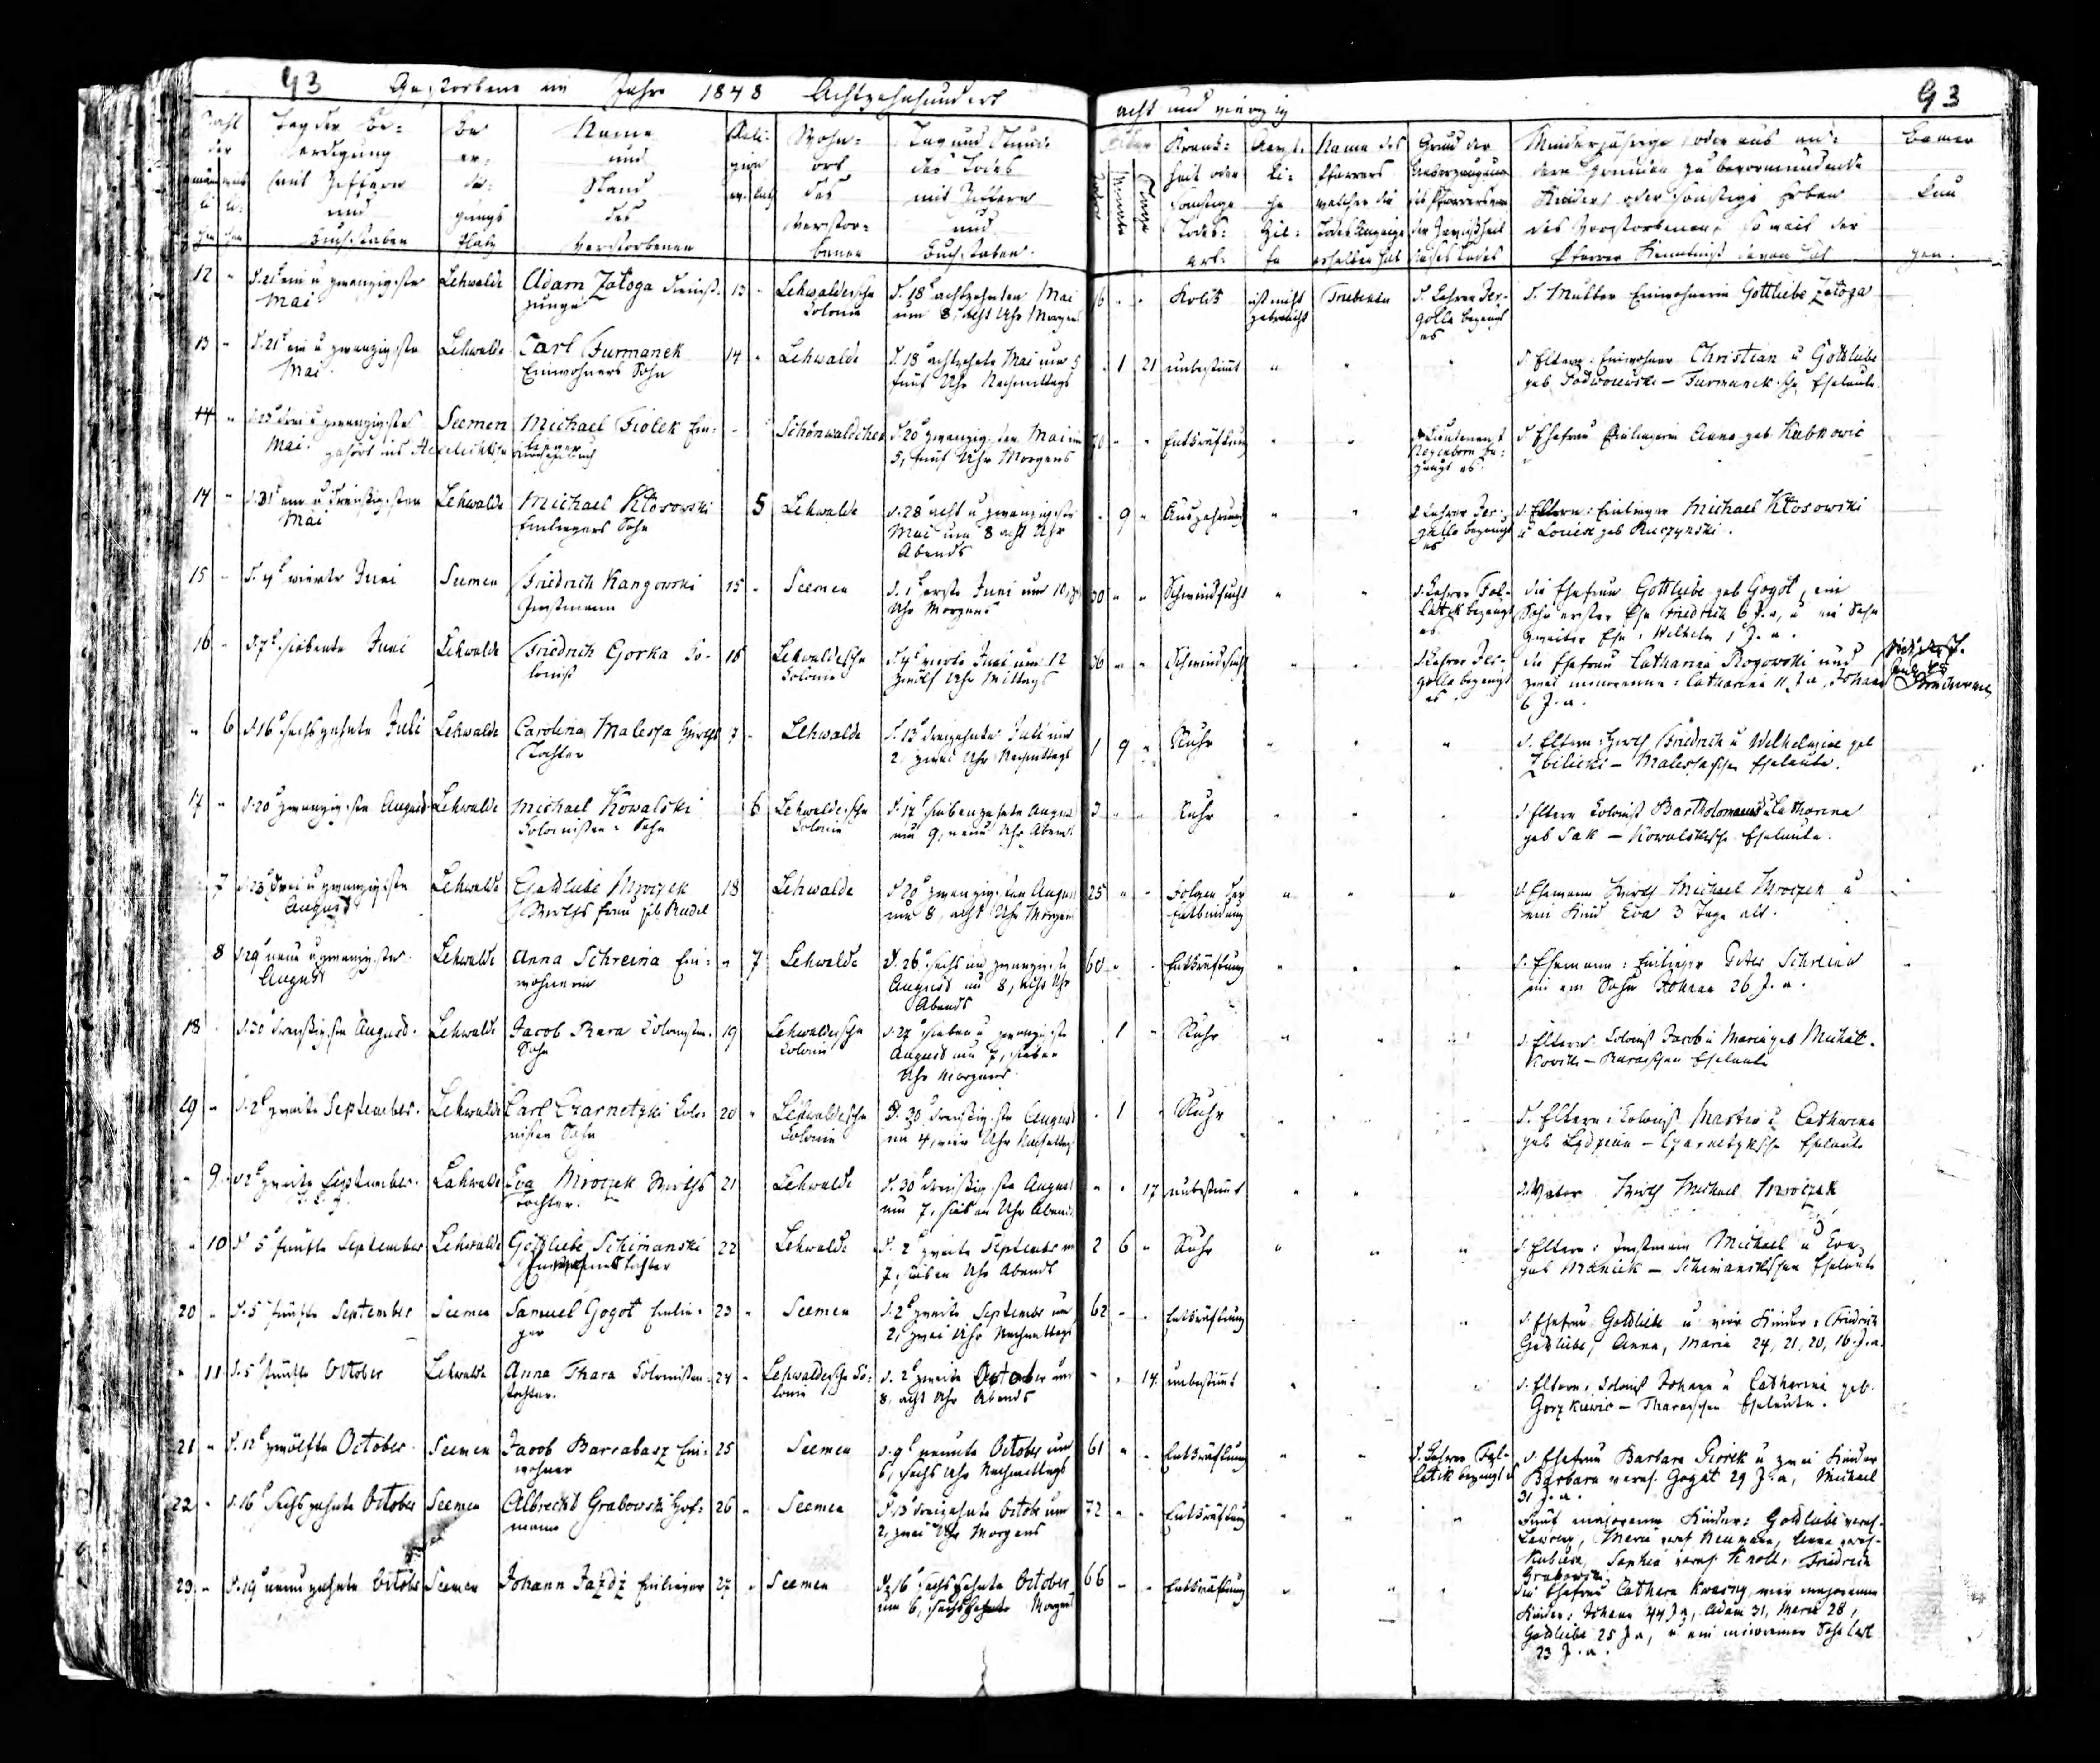 93 Gestorbene im Jahre 1848 Achtzehnhundert acht und vierzig 93
Zahl der
Tag der Be-
erdigung
mit Ziffern
und
Buchstaben
Be
er-
di-
gungs
Platz
Name
und
Stand
des
Verstorbenen
Reli-
gion
ev. kath
Wohn-
ort
des
Verstor-
benen
Tag und Stunde
des Todes
mit Ziffern
und
Buchstaben
Alter
Jahre
Monate
Tage
Krank-
heit oder
sonstige
Todes-
art
Aerzt-
li-
che
Hül-
fe
Name des
Pfarrers
welcher die
Todes Anzeige
erhalten hat
Grund der
Ueberzeugung
des Pfarrers von
der Gewißheit
dieses Todes
Minderjährige oder aus an-
dern Gründen zu bevormundende
Kinder, oder sonstige Erben
des Verstorbenen, so weit der
Pfarrer Kenntniß davon hat
Bemer
kun
gen.
12 " d. 21 ein u zwanzigsten Mai
Lehwalde
Adam Zatoga Dienst-
junge
13 "
Lehwaldesche
Colonie
d. 18 achtzehnten Mai
um 8, acht Uhr Morgens
16 " "
Kolik
ist nicht
gebraucht
d. Lehrer Jer-
golla bezeugt
es
d. Mutter Einwohnerin Gottliebe Zatoga
13 " d. 21 ein u zwanzigste Mai
Lehwalde
Carl Furmanek
Einwohners Sohn
14 "
Lehwalde
d. 18 achtzehnte Mai um 5
fünf Uhr Nachmittags
" 1 21
unbestimmt
d. Eltern: Einwohner Christian u Gottliebe
geb Podworewski – Furmaneksche Eheleute.
14 " d. 23 drei u zwanzigste
Mai. gehört ins
Kirchenbuch
Seemen
Michael Fiolek Ein-
lieger
d. 20 zwanzigsten Mai um
5, fünf Uhr Morgens
70 " "
Entkräftung
d. Lieutenant
be-
zeugt es.
d. Ehefrau Einliegerin Anna geb Kubkowic
14 " d. 31 ein u dreißigsten
Mai
Lehwalde
Michael Klosowski
Einliegers Sohn
5
Lehwalde
d. 28 acht u zwanzigste
Mai um 8 acht Uhr
Abends
" 9 "
Auszehrung
d Lehrer Jer-
golla bezeugt
es
d. Eltern: Einlieger Michael Klosowski
u Louise geb Ruczynski.
15 " d. 4 vierte Juni
Seemen
Friedrich Kangowski
Instmann
15 "
Seemen
d. 1 erste Juni um 10,
Uhr Morgens
30 " "
Schwindsucht
d. Lehrer
bezeugt
es
die Ehefrau Gottliebe geb Gogot, ein
Sohn erster Ehe Friedrich 6 J. a, u ein Sohn
zweiter Ehe, Wilhelm 1 J. a.
16 " d. 7 siebente Juni
Lehwalde
Friedrich Gorka Co-
lonist
16
Lehwaldesche
Colonie
d. 4 vierte Juni um 12
zwölf Uhr Mittags
36 " "
Schwindsucht
d Lehrer Jer-
golla bezeugt
es
die Ehefrau Catharina Rogowski und
zwei minorenne: Catharina 11 J a, Johann
6 J. a.
" 6 d. 16 sechszehnte Juli
Lehwalde
Carolina Malessa Wirths
Tochter
7 "
Lehwalde
d. 13 dreizehnte Juli um
2, zwei Uhr Nachmittags
1 9 "
Ruhr
d. Eltern: Wirth Friedrich u Wilhelmine geb
Zbilicki – Malessasche Eheleute.
17 " d. 20 zwanzigste August
Lehwalde
Michael Kowalski
Colonisten-Sohn
6
Lehwaldesche
Colonie
d. 17 siebenzehnte August
um 9, neun Uhr Abends
3 " "
Ruhr
d. Eltern Colonist Bartholomaeus u Catharina
geb Sak – Kowalskische Eheleute.
7 d. 23 drei u zwanzigste
August
Lehwalde
Gottliebe Mroczek
Wirths frau geb Rudel
18
Lehwalde
d 20 zwanzigsten August
um 8, acht Uhr Morgens
25 " "
Folgen der
Entbindung
d. Ehemann Wirth Michael Mroczek u
ein Kind Eva 3 Tage alt.
8 d. 29 neun u zwanzigste
August
Lehwalde
Anna Schreina Ein-
wohnerin
" 7
Lehwalde
d. 26 sechs und zwanzigste
August um 8, acht Uhr
Abends
60 " "
Entkräftung
d. Ehemann: Einlieger Peter Schreina
u ein Sohn Johann 26 J. a.
18 d. 30 dreißigste August
Lehwalde
Jacob Bara Colonisten-
Sohn
19
Lehwaldesche
Colonie
d. 27 sieben u zwanzigste
August um 7, sieben
Uhr Morgens
" 1 "
Ruhr
d. Eltern Colonist Jacob u Maria geb
– Eheleute
19 " d. 2 zweite September
Lehwalde
Carl Czarnetzki Colo-
nisten Sohn
20 "
Lehwaldesche
Colonie
d. 30 dreißigste August
um 4, vier Uhr Nachmittags
" 1 "
Ruhr
d. Eltern: Colonist Martin u Catharina
geb – Czarnetzkische Eheleute
" 9 d. 2 zweite September.
Lehwalde
Eva Mroczek Wirths
Tochter.
21
Lehwalde
d. 30 dreißigste August
um 7, sieben Uhr Abends
" " 17
unbestimmt
d. Vater Wirth Michael Mroczek
" 10 d 5 fünfte September
Lehwalde
Gottliebe Schimanski
Tochter
22
Lehwalde
d. 2 zweite September um
7, sieben Uhr Abends
2 6 "
Ruhr
d. Eltern: Instmann Michael u Eva
geb Maniek – Schimanskischen Eheleute
20 " d. 5 fünfte September
Seemen
Samuel Gogot Einlie-
ger
23 "
Seemen
d. 2 zweite September um
2, zwei Uhr Nachmittags
62 " "
Entkräftung
d. Ehefrau Gottliebe u vier Kinder: Friedrich
Gottliebe, Anna, Maria 24, 21, 20, 16. J. a.
" 11 d. 5 fünfte October
Lehwalde
Anna Thara Colonisten-
tochter.
24 "
Lehwaldesche Co-
lonie
d. 2 zweite October um
8, acht Uhr Abends
" " 14
unbestimmt
d. Eltern, Colonist Johann u Catharina geb.
Gorzkiewic – Tharaschen Eheleute.
21 " d. 12 zwölfte October
Seemen
Jacob Barrabasz Ein-
wohner
25
Seemen
d. 9 neunte October um
6, sechs Uhr Nachmittags
61 " "
Entkräftung
d. Lehrer
bezeugt es
d. Ehefrau Barbara Piorek u zwei Kinder
Barbara verh. Gogot 29 J. a, Michael
31 J. a.
22 " d. 16 sechszehnte October
Seemen
Albrecht Grabowski Hof-
mann
26 "
Seemen
d. 13 dreizehnte October um
2, zwei Uhr Morgens
72 " "
Entkräftung
Fünf majorenne Kinder: Gottliebe verh.
Maria verh Neumann, Anna verh-
Sophia verh. Knoll, Friedrich
Grabowski
23 " d. 19 neunzehnte October
Seemen
Johann Jażdż Einlieger
27 "
Seemen
d. 16 sechszehnte October
um 6, Morgens
66 " "
Entkräftung
die Ehefrau Cathara Kwasny, vier majorenne
Kinder: Johann 44 J a, Adam 31, Marie 28,
Gottliebe 25 J a, u ein minorenner Sohn Carl
23 J. a.